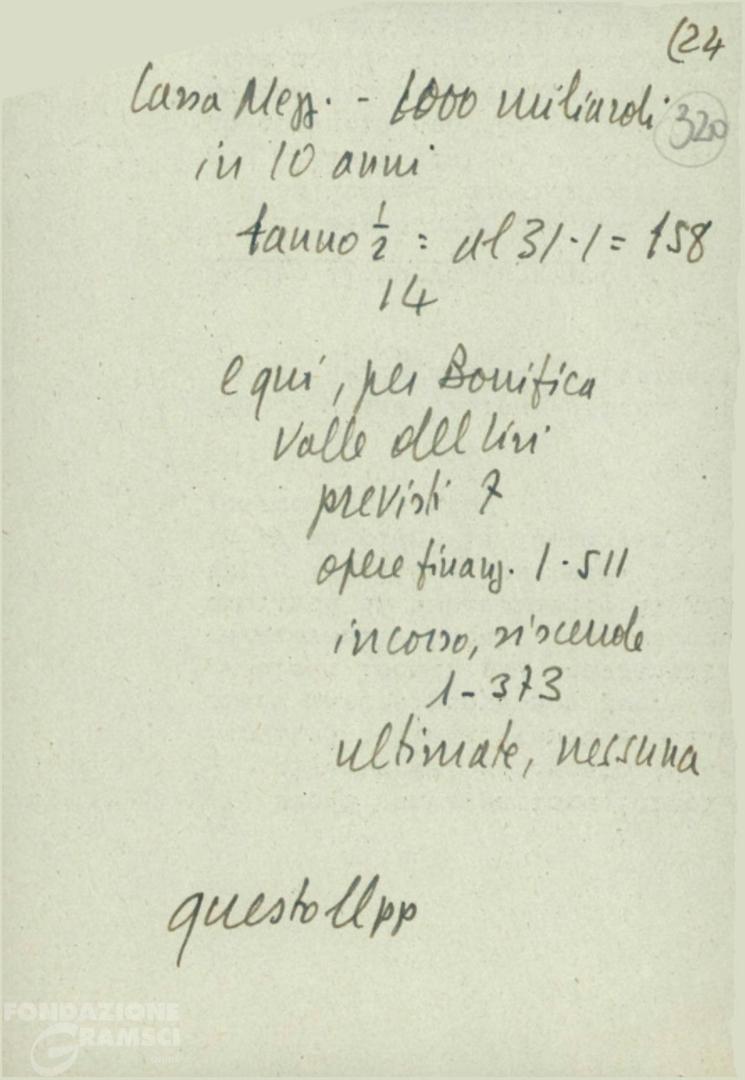 (24
Cassa Mezz. - 1000 miliardi
320
in 10 anni
1 anno ½ = al 31·1 = 158
14
e qui, per Bonifica
Valle del Liri
previsti 7
opere finanz. 1·511
in corso, si scende
1-373
ultimate, nessuna
questo
FONDAZIONE
GRAMSCI